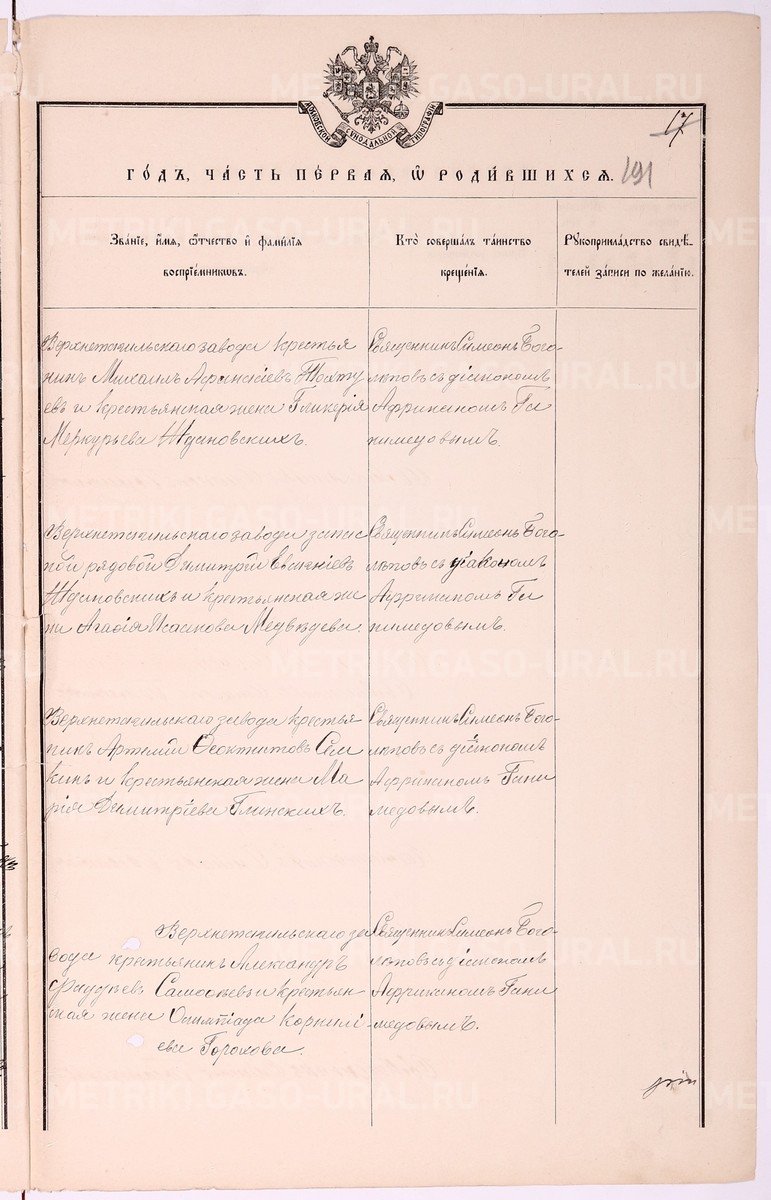 METRIKI GASO-URAL.RU
МОСКОВСКОЙ СѴНОДАЛЬНОЙ ТИПОГРАФІИ
17
ГО́ДЪ, ЧА́СТЬ ПЕ́РВАЯ, Ѡ҆ РОДИ́ВШИХСЯ. 191
Зва́нїе, и҆́мя, ѻ҆́тчество и҆ фами́лїя
воспрїе́мниковъ.
Кто̀ соверша́лъ та́инство
креще́нїѧ.
Рꙋкоприкла́дство свидѣ́-
телей за́писи по жела́нїю.
Верхнетагильскаго завода крестья
нинъ Михаилъ Афанасіевъ Тохту
евъ и крестьянская жена Гликерія
Меркурьева Ждановскихъ.
Священникъ Симеонъ Бого-
лѣповъ съ діакономъ
Африканомъ Га
нимедовымъ.
Верхнетагильскаго завода запас
ной рядовой Димитрій Евгеніевъ
Ждановскихъ и крестьянская же
на Агафія Исаакова Медвѣдева.
Священникъ Симеонъ Бого-
лѣповъ съ діакономъ
Африканомъ Га
нимедовымъ.
Верхнетагильскаго завода крестья
нинъ Артемій Ѳеоктистовъ Сем
кинъ и крестьянская жена Ма
рія Димитріева Глинскихъ.
Священникъ Симеонъ Бого-
лѣповъ съ діакономъ
Африканомъ Гани
медовымъ.
Верхнетагильскаго за
вода крестьянинъ Александръ
Фаддѣевъ и крестьян
ская жена Олимпіада Корнилі
ева Горохова.
Священникъ Симеонъ Бого-
лѣповъ съ діакономъ
Африканомъ Гани
медовымъ.